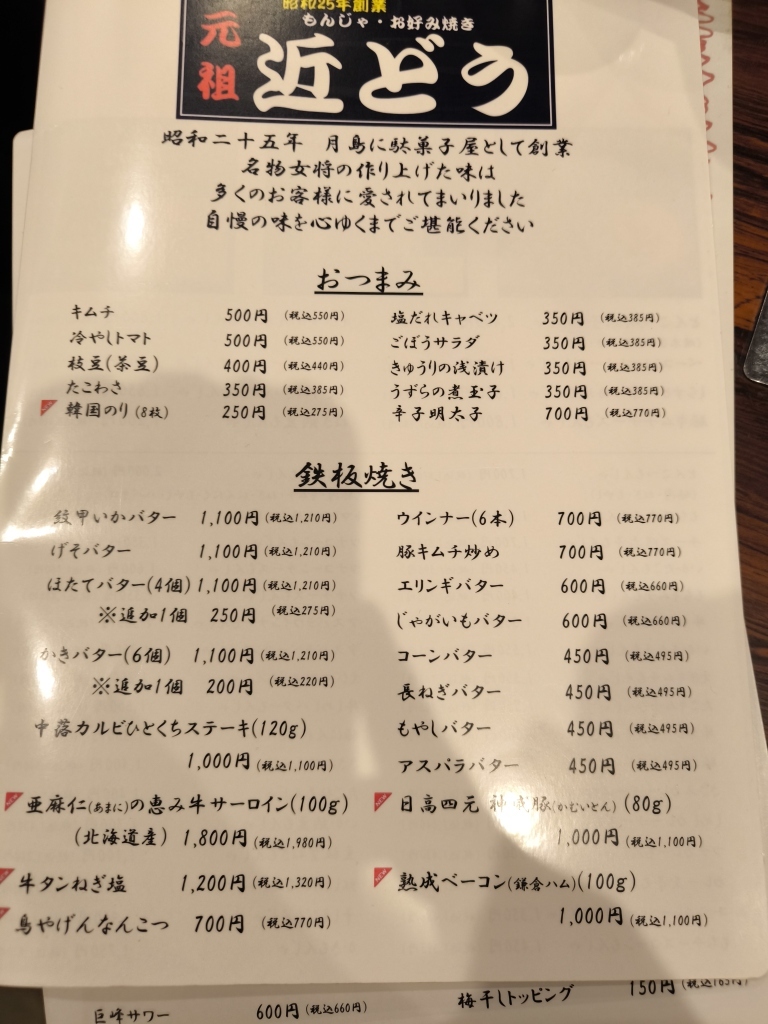 昭和25年創業
もんじゃ・お好み焼き
元祖 近どう
昭和二十五年 月島に駄菓子屋として創業
名物女将の作り上げた味は
多くのお客様に愛されてまいりました
自慢の味を心ゆくまでご堪能ください
おつまみ
キムチ 500円 (税込550円)
冷やしトマト 500円 (税込550円)
枝豆(茶豆) 400円 (税込440円)
たこわさ 350円 (税込385円)
韓国のり(8枚) 250円 (税込275円)
塩だれキャベツ 350円 (税込385円)
ごぼうサラダ 350円 (税込385円)
きゅうりの浅漬け 350円 (税込385円)
うずらの煮玉子 350円 (税込385円)
辛子明太子 700円 (税込770円)
鉄板焼き
紋甲いかバター 1,100円 (税込1,210円)
げそバター 1,100円 (税込1,210円)
ほたてバター(4個) 1,100円 (税込1,210円)
※追加1個 250円 (税込275円)
かきバター(6個) 1,100円 (税込1,210円)
※追加1個 200円 (税込220円)
中落カルビひとくちステーキ(120g)
1,000円 (税込1,100円)
亜麻仁(あまに)の恵み牛サーロイン(100g)
(北海道産) 1,800円 (税込1,980円)
牛タンねぎ塩 1,200円 (税込1,320円)
鳥やげんなんこつ 700円 (税込770円)
ウインナー(6本) 700円 (税込770円)
豚キムチ炒め 700円 (税込770円)
エリンギバター 600円 (税込660円)
じゃがいもバター 600円 (税込660円)
コーンバター 450円 (税込495円)
長ねぎバター 450円 (税込495円)
もやしバター 450円 (税込495円)
アスパラバター 450円 (税込495円)
日高四元 神威豚(かむいとん) (80g)
1,000円 (税込1,100円)
熟成ベーコン(鎌倉ハム)(100g)
1,000円 (税込1,100円)
巨峰サワー 600円 (税込660円)
梅干しトッピング 150円 (税込165円)